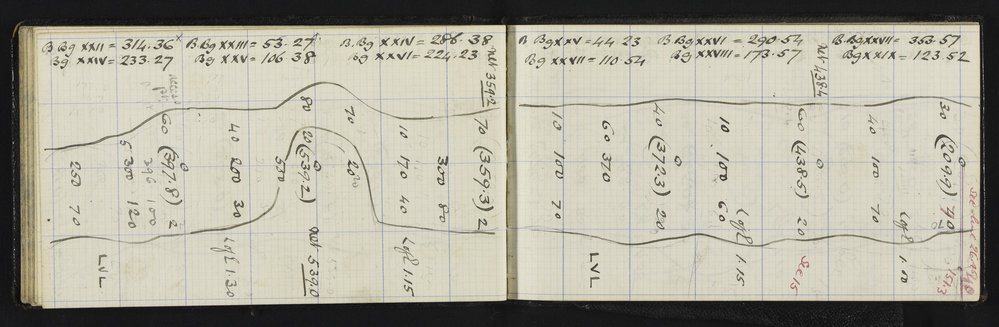 B Bg XXII = 314.36 B Bg XXIII = 53.27 B. Bg XXIV = 286.38
Bg XXIV = 233.27 Bg XXV = 106.38 Bg XXVI = 224.23
250 70
LVL
5 300 120
60 (397.8) 2
296 100
40 200 30
Lgfl 1.30
530
80 20 (539.2)
not 539.0
70 20
10 170 40
Lgfl 1.15
300 80
not 359.2
70 (359.3) 2
B Bg XXV = 44 23 B Bg XXVI = 290.54 B. Bg XXVII = 353.57
Bg XXVII = 110.54 Bg XXVIII = 173.57 Bg XXIX = 123.52
10 100 70
60 370
LVL
40 (372.3) 20
10 100 60
Lgfl 1.15
not 438.4
60 (438.5) 20
Se 15
40 100 70
Lgfl 1.00
30 (209.9) 40
151.3